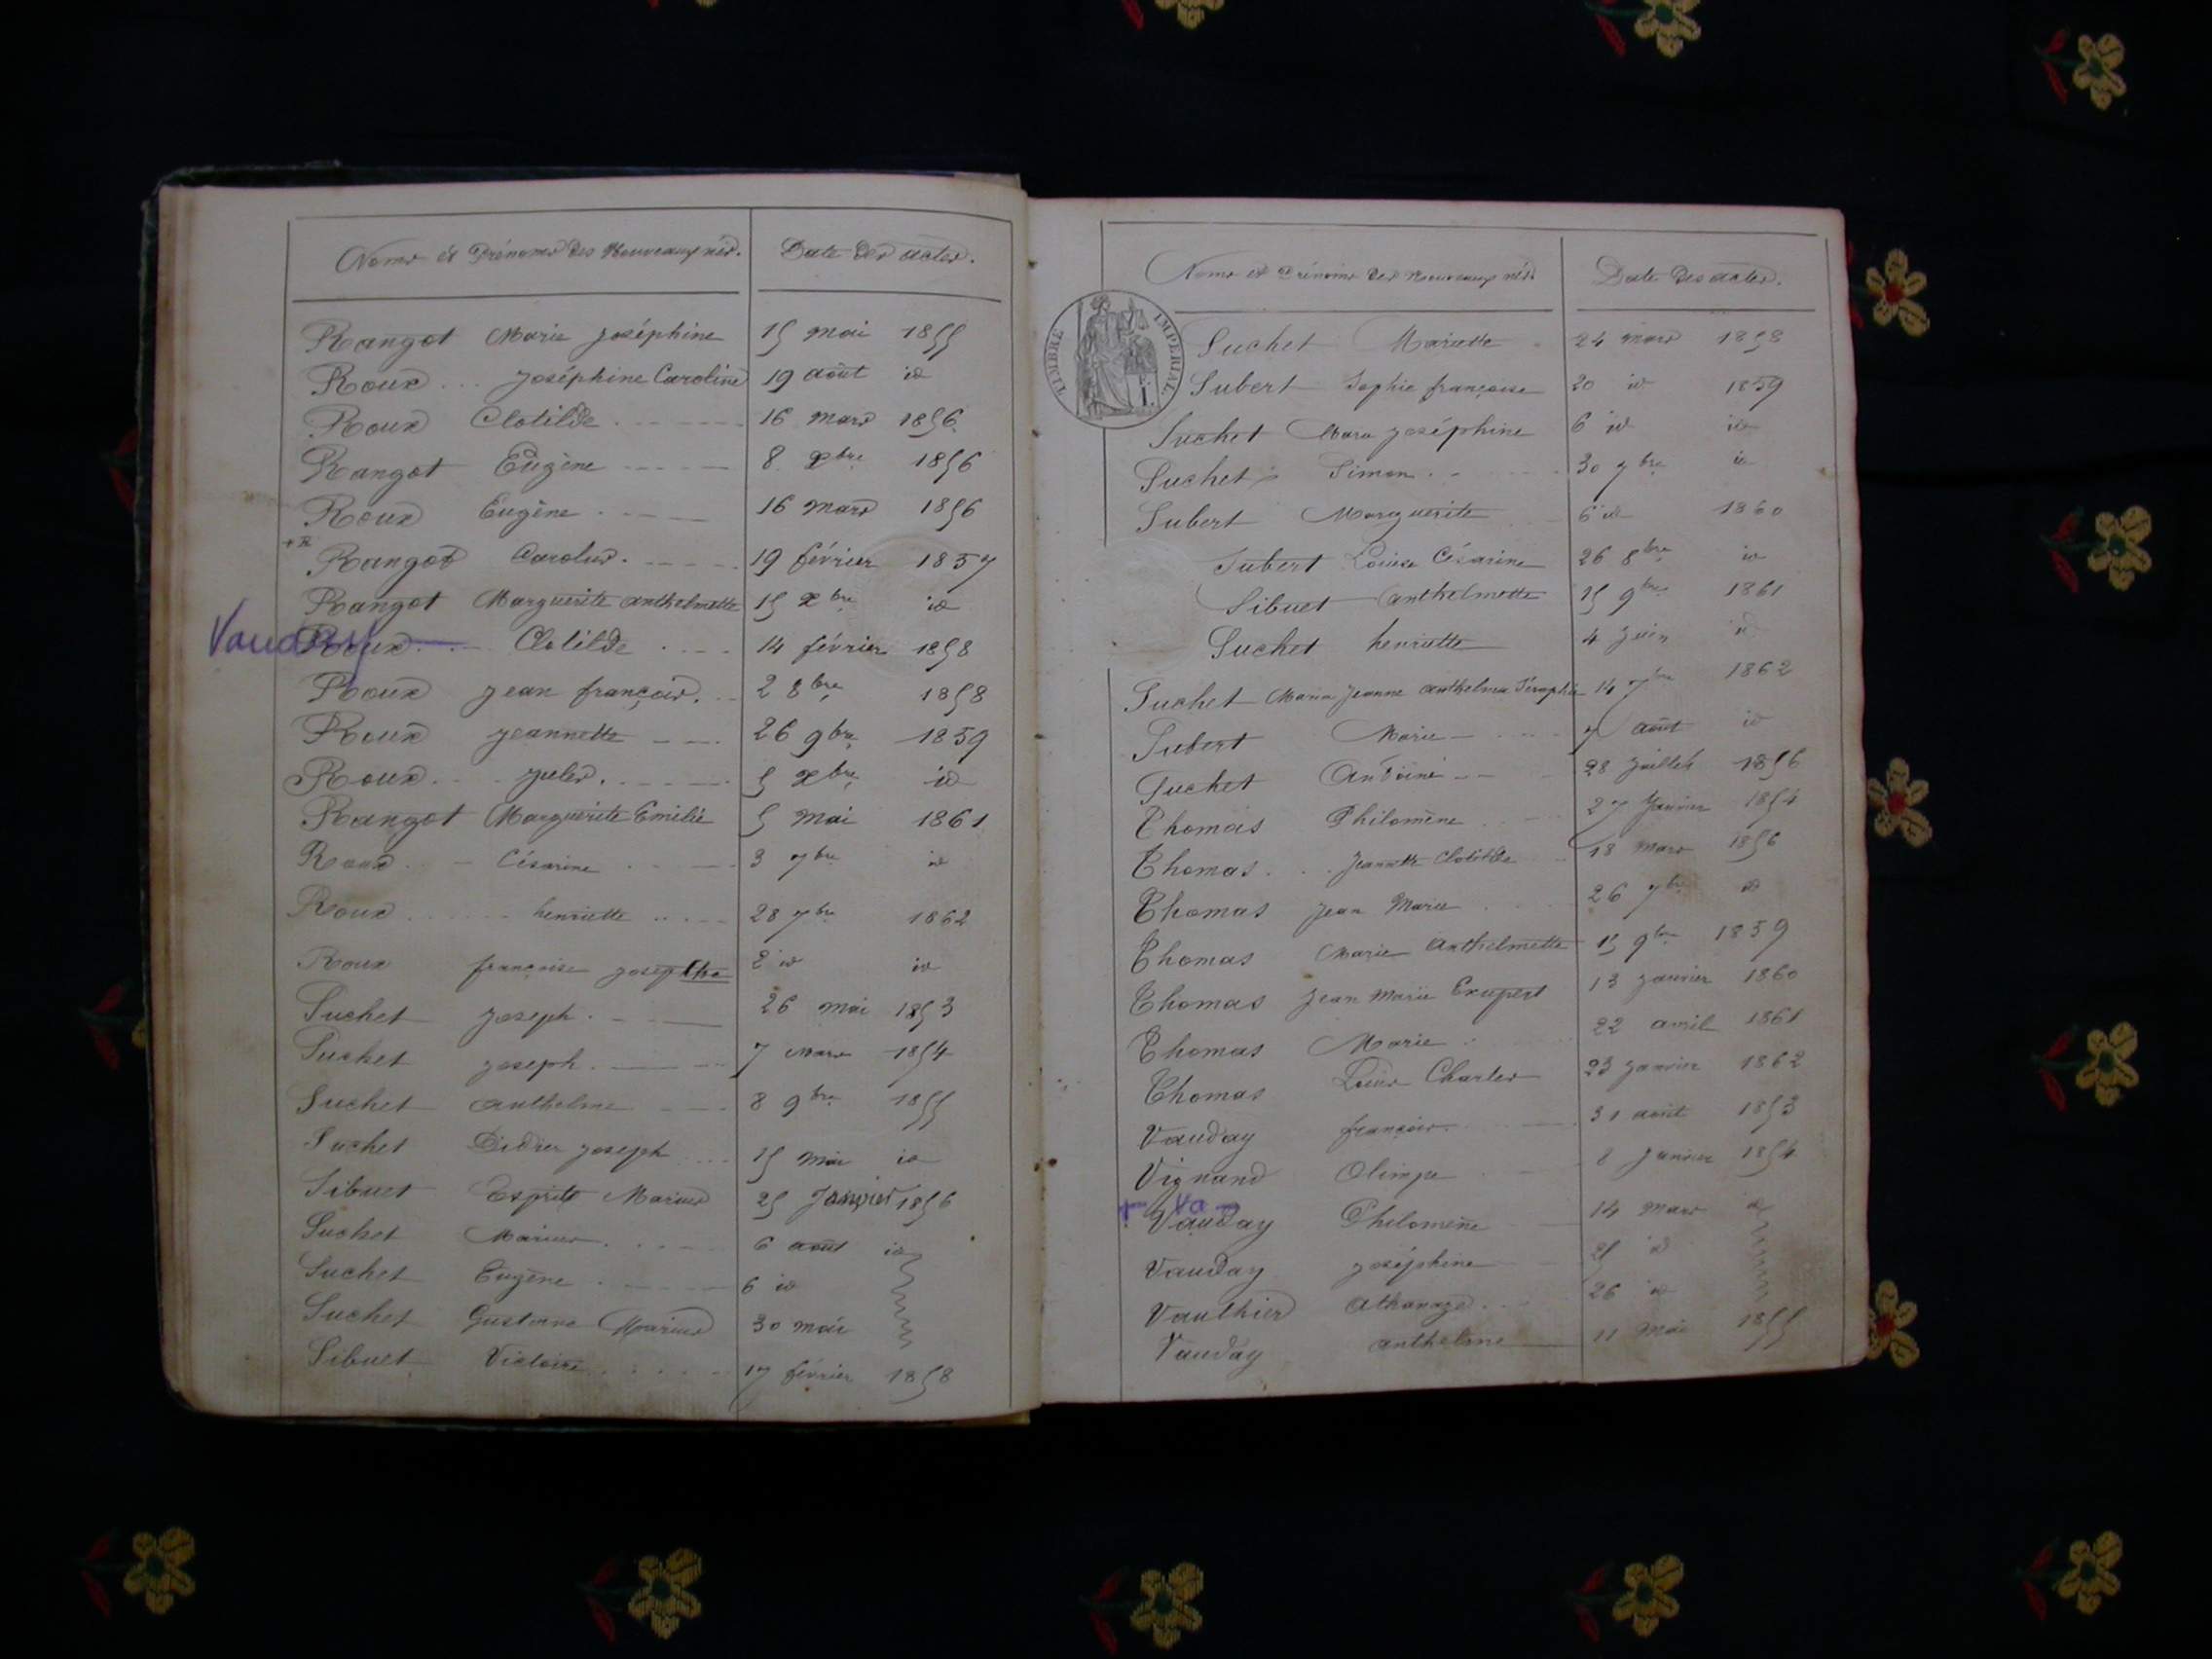 Noms et Prénoms des Nouveaux nés. Date des actes.
Rangot Marie Joséphine 15 mai 1855
Roux Joséphine Caroline 19 août id
Roux Clotilde 16 mars 1856
Rangot Eugène 8 xbre 1856
Roux Eugène 16 mars 1856
Rangot Carolus. 19 février 1857
Rangot Marguerite anthelmette 15 xbre id
Vauday
Roux Clotilde 14 février 1858
Roux Jean françois. 2 8bre 1858
Roux Jeannette 26 9bre 1859
Roux Jules. 5 xbre id
Rangot Marguerite Emilie 5 mai 1861
Roux Césarine 3 7bre id
Roux henriette 28 7bre 1862
Roux françoise Josephte 2 id id
Suchet Joseph 26 mai 1853
Suchet Joseph 7 mars 1854
Suchet anthelme 8 9bre 1855
Suchet Didier Joseph 15 mai id
Sibuet Esprit Marius 25 Janvier 1856
Suchet Marius 6 août id
Suchet Eugène 6 id
Suchet Gustave Marius 30 mai
Sibuet Victoire 17 février 1858
Noms et Prénoms des Nouveaux nés. Date des actes.
TIMBRE IMPERIAL
Suchet Mariette 24 mars 1858
Subert Sophie françoise 20 id 1859
Suchet Marie Joséphine 6 id id
Suchet Simon 30 7bre id
Subert Marguerite 6 id 1860
Subert Louise Césarine 26 8bre id
Sibuet anthelmette 15 9bre 1861
Suchet henriette 4 Juin id
Suchet Maria Jeanne anthelma 14 7bre 1862
Subert Marie 7 août id
Suchet Antoine 28 Juillet 1856
Thomas Philomène 27 Janvier 1854
Thomas Jeannette Clotilde 18 mars 1856
Thomas Jean Marie 26 7bre id
Thomas Marie Anthelmette 15 9bre 1859
Thomas Jean Marie Exupert 13 Janvier 1860
Thomas Marie 22 avril 1861
Thomas Louis Charles 23 Janvier 1862
Vauday françois. 31 août 1853
Vignand Olimpe 8 Janvier 1854
Va
Vauday Philomène 14 mars id
Vauday Joséphine 21 id
Vauthier Athanaze 26 id
Vauday anthelme 11 mai 1855